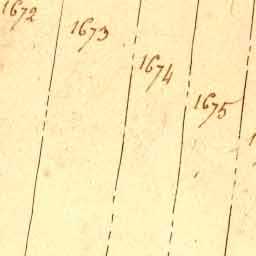 1672
1673
1674
1675